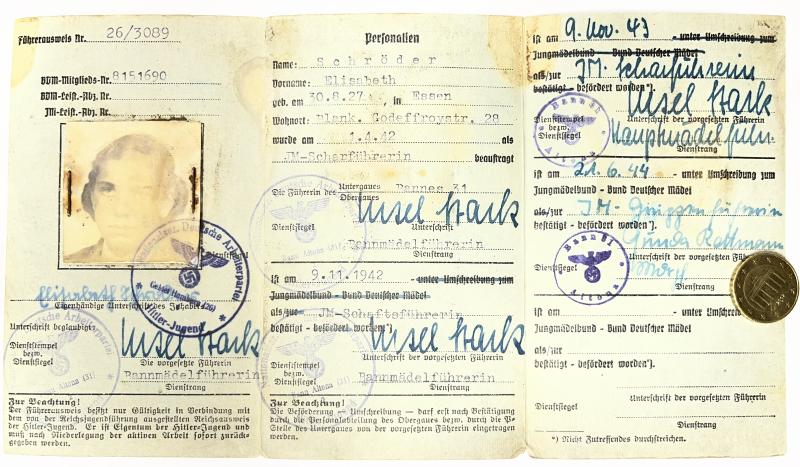 Führerausweis Nr. 26/3089
BDM-Mitglieds-Nr. 8151690
BDM-Leist.-Abz. Nr.
JM-Leist.-Abz. Nr.
Deutsche Arbeiterpartei
Hitler-Jugend
Dienstsiegel
Elisabeth
Eigenhändige Unterschrift des Inhabers
Unterschrift beglaubigt:
Dienststempel
bezw.
Dienstsiegel
Ursel Stark
Die vorgesetzte Führerin
Bannmädelführerin
Dienstrang
Bann Altona (31)
Zur Beachtung!
Der Führerausweis besitzt nur Gültigkeit in Verbindung mit
dem von der Reichsjugendführung ausgestellten Reichsausweis
der Hitler-Jugend. Er ist Eigentum der Hitler-Jugend und
muß nach Niederlegung der aktiven Arbeit sofort zurück-
gegeben werden.
Personalien
Name: Schröder
Vorname: Elisabeth
geb. am 30.8.27 in Essen
Wohnort: Blank. Godeffroystr. 28
wurde am 1.4.42 als
JM-Scharführerin beauftragt
Die Führerin des Untergaues Bannes 31
Obergaues
Ursel Stark
Dienstsiegel Unterschrift
Bannmädelführerin
Dienstrang
ist am 9.11.1942 - unter Umschreibung zum
Jungmädelbund - Bund Deutscher Mädel
als/zur JM-Schaftsführerin
bestätigt - befördert worden*).
Ursel Stark
Dienststempel Unterschrift der vorgesetzten Führerin
bezw.
Dienstsiegel Bannmädelführerin
Dienstrang
Bann Altona (31)
Zur Beachtung!
Die Beförderung - Umschreibung - darf erst nach Bestätigung
durch die Personalabteilung des Obergaues bezw. durch die P-
Stelle des Untergaues von der Führerin eingetragen
werden.
ist am 9. Nov. 43 - unter Umschreibung zum
Jungmädelbund - Bund Deutscher Mädel
als/zur JM. Scharführerin
bestätigt - befördert worden*).
Ursel Stark
Dienststempel Unterschrift der vorgesetzten Führerin
bezw.
Dienstsiegel Hauptmädelführ.
Dienstrang
Bann 31
Altona
ist am 21.6.44 - unter Umschreibung zum
Jungmädelbund - Bund Deutscher Mädel
als/zur JM-Gruppenführerin
bestätigt - befördert worden*).
Dienstsiegel
Dienstrang
Bann 31
Altona
ist am - unter Umschreibung zum
Jungmädelbund - Bund Deutscher Mädel
als/zur
bestätigt - befördert worden*).
Unterschrift der vorgesetzten Führerin
Dienstsiegel
Dienstrang
*) Nicht Zutreffendes durchstreichen.